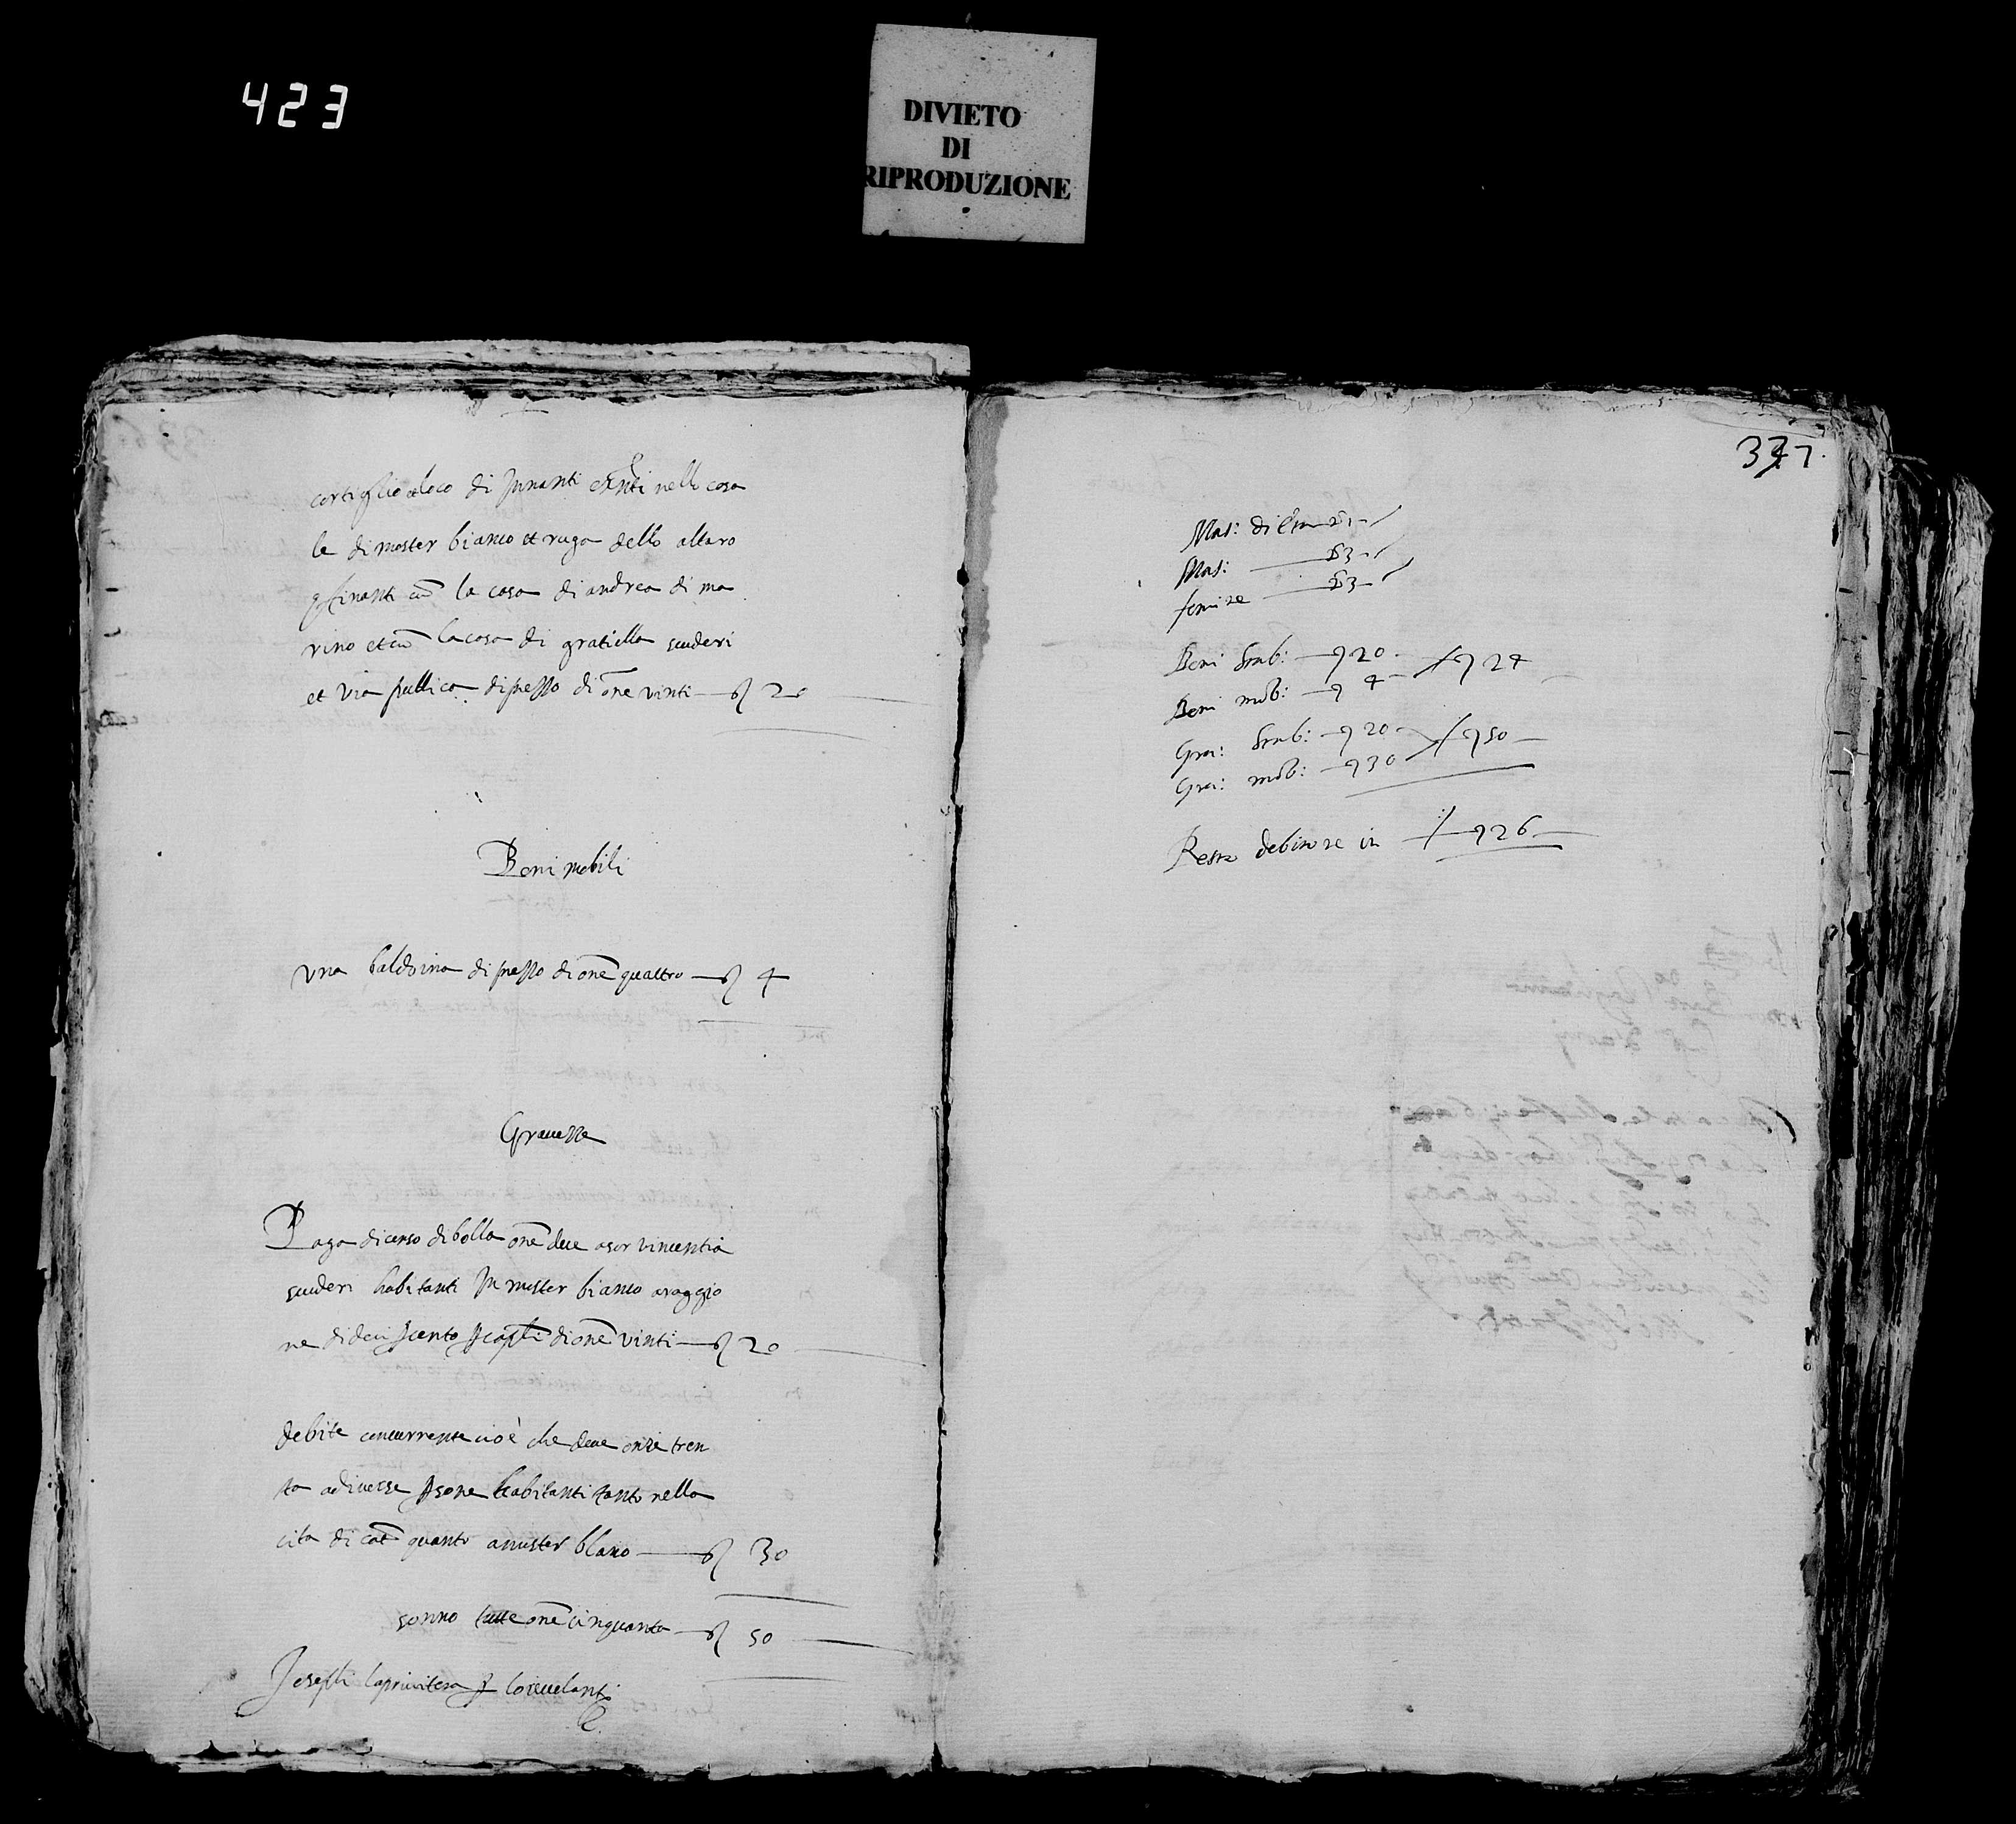 423
DIVIETO
DI
RIPRODUZIONE
cortiglio et loco di innanti existenti nello casa
le di mister bianco et ruga dello altaro
confinanti cum la casa di andrea di ma
rino et cum la casa di gratiella scuderi
et via publica di prezzo di onze vinti — 20
Beni mobili
una baldoina di prezzo di onze quattro — 4
Gravezze
Paga di censo di bolla onze due a sor vincentia
scuderi habitanti in mister bianco a raggio
ne di deci per cento per capitali di onze vinti — 20
debite concurrente cioè che deve onze tren
ta a diverse persone habitanti tanto nella
cita di cat.ª quanto a mister blanco — 30
sonno tutte onze cinquanta — 50
Joseph laprivitera per lo revelanti
337.
Mas: di
Mas: — 3
femine — 3
Beni stab: — 20 — 24
Beni mob: — 4
Gra: stab: — 20 — 50
Gra: mob: — 30
Resta debitore in — 26